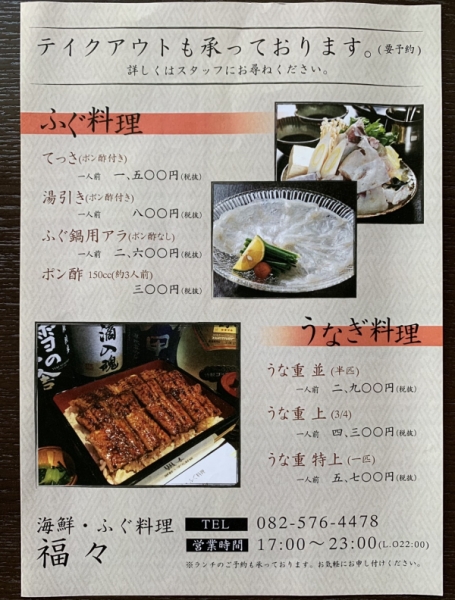 テイクアウトも承っております。(要予約)
詳しくはスタッフにお尋ねください。
ふぐ料理
てっさ(ポン酢付き)
一人前 一、五〇〇円(税抜)
湯引き(ポン酢付き)
一人前 八〇〇円(税抜)
ふぐ鍋用アラ(ポン酢なし)
一人前 二、六〇〇円(税抜)
ポン酢 150cc(約3人前)
三〇〇円(税抜)
うなぎ料理
うな重 並 (半匹)
一人前 二、九〇〇円(税抜)
うな重 上 (3/4)
一人前 四、三〇〇円(税抜)
うな重 特上 (一匹)
一人前 五、七〇〇円(税抜)
海鮮・ふぐ料理
福々
TEL 082-576-4478
営業時間 17:00～23:00(L.O22:00)
※ランチのご予約も承っております。お気軽にお申し付けください。